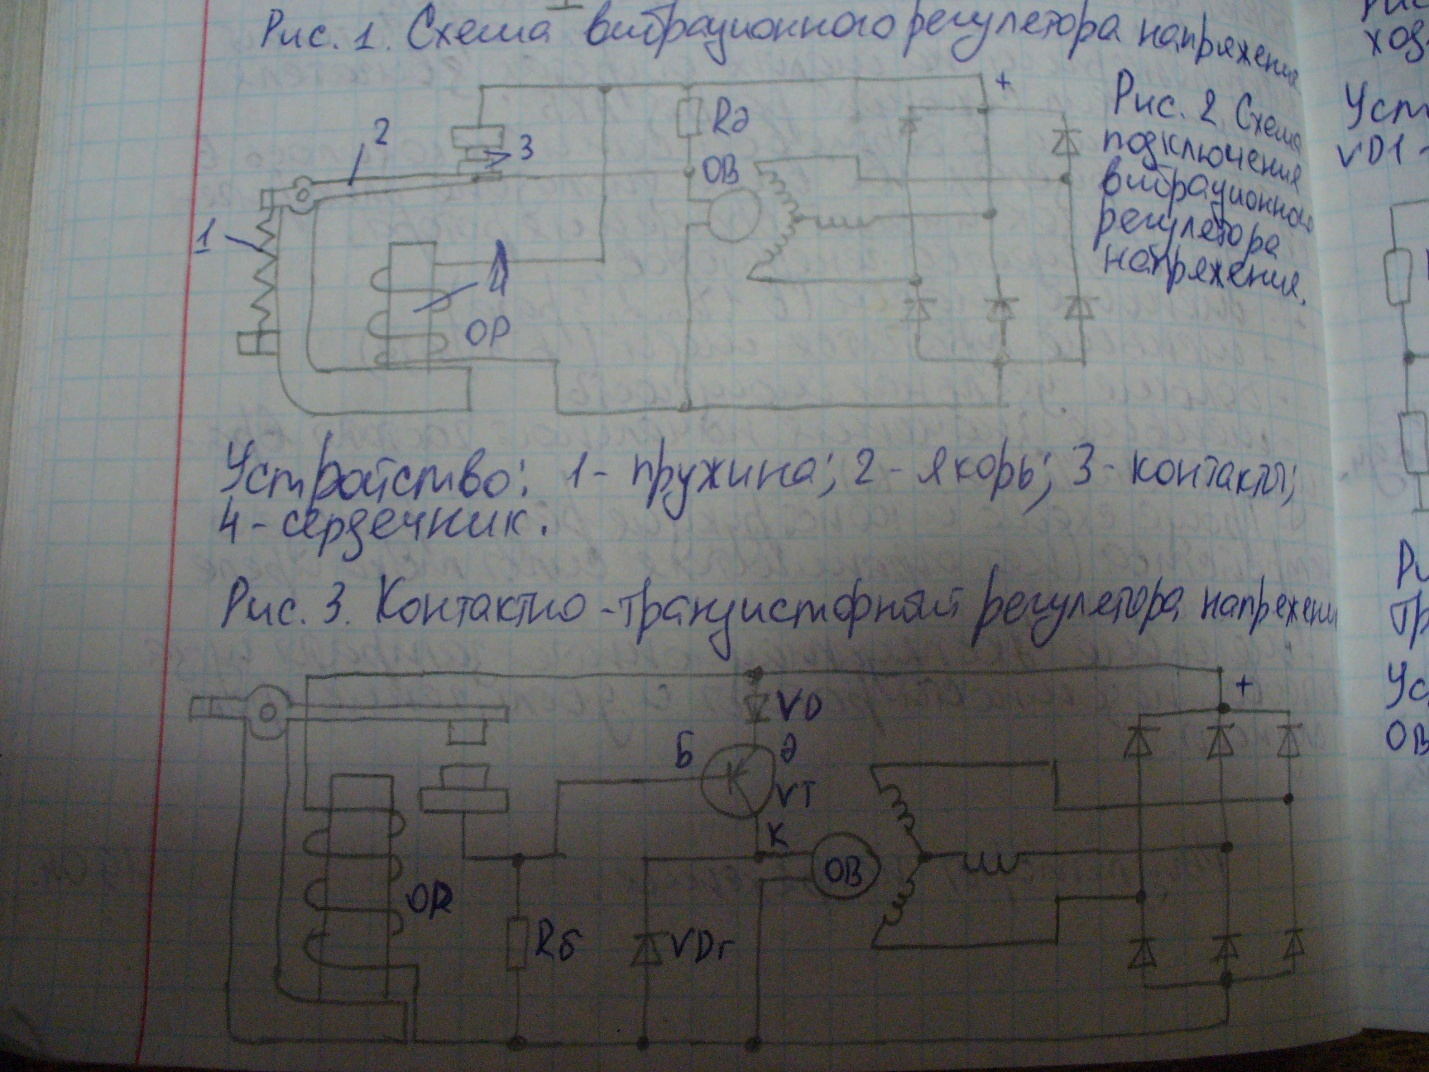 Рис. 1. Схема вибрационного регулятора напряжения
+
Rд
2
3
ОВ
1
4
ОР
Рис. 2 Схема
подключения
вибрационного
регулятора
напряжения.
Устройство: 1- пружина; 2- якорь; 3- контакты;
4- сердечник.
Рис. 3. Контактно-транзисторный регулятора напряжения
+
VD
Б
Э
VT
К
ОВ
ОR
Rб
VDг
Уст
VD1 -
Ри
Тр
Ус
ОВ